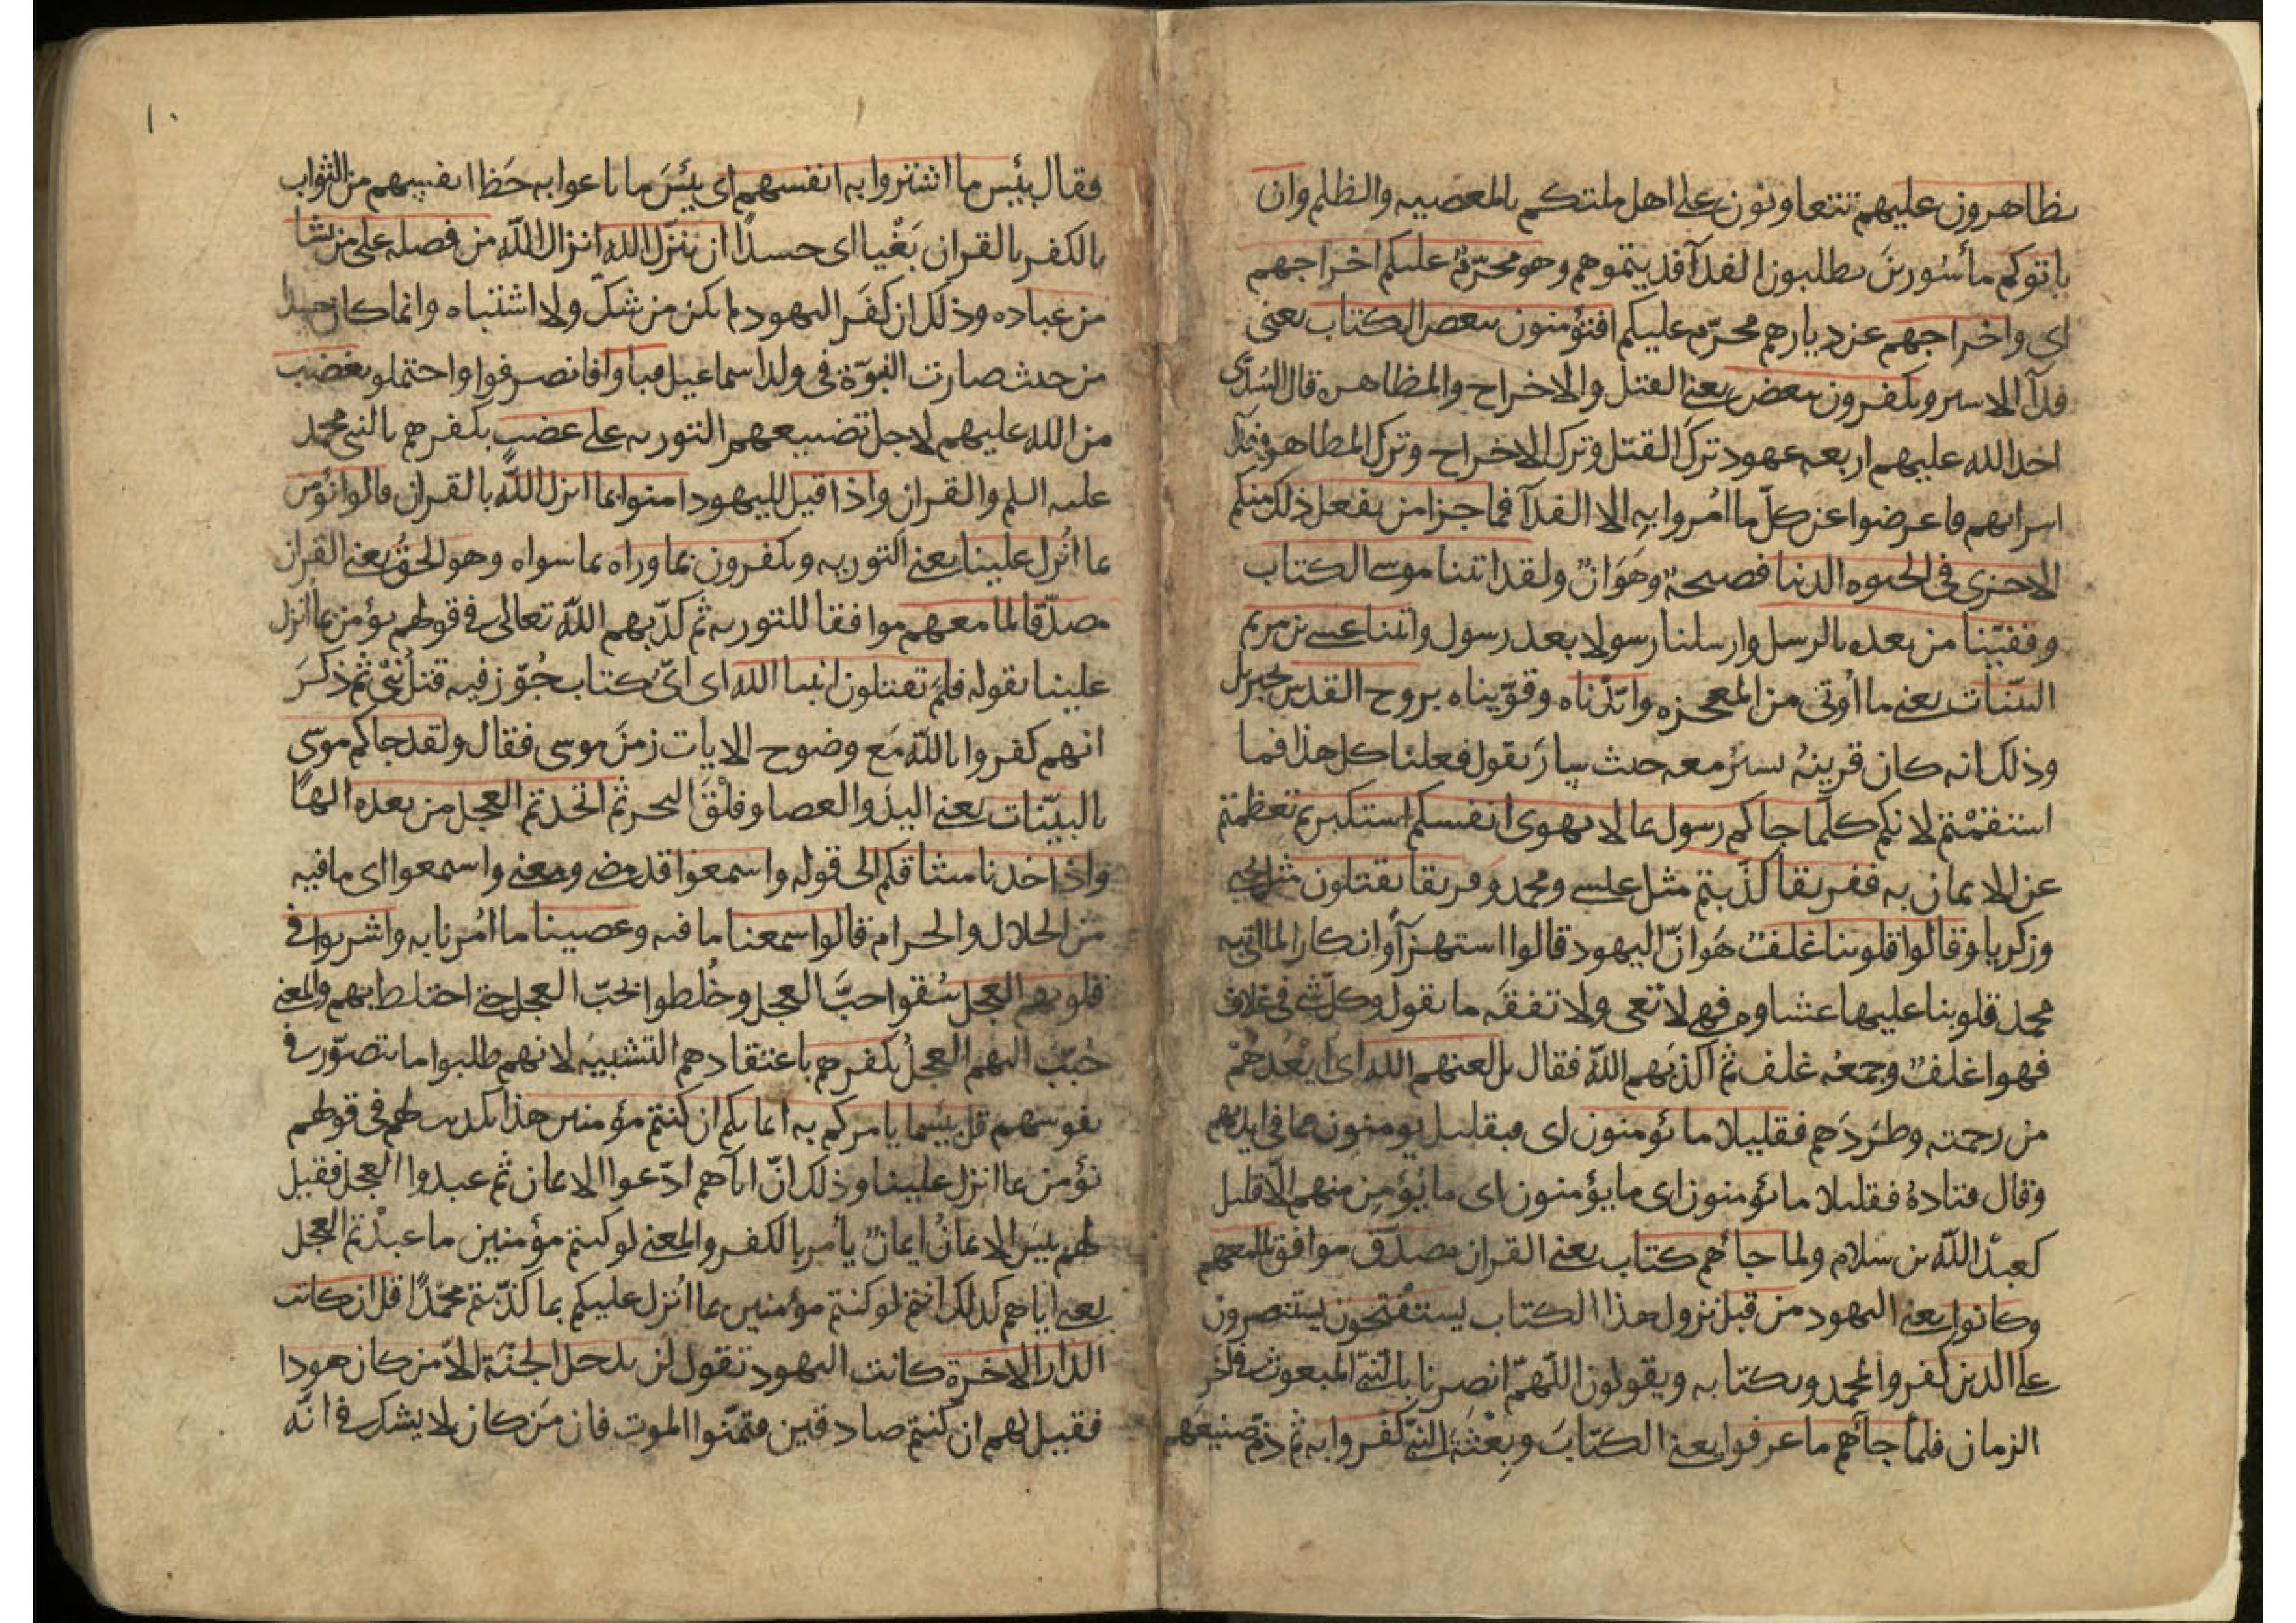 تظاهرون عليهم تتعاونون على اهل ملتكم بالمعصيه والظلم وان
ياتوكم مأسورينَ يطلبون الفدآ فديتموهم وهو محرّمٌ عليكم اخراجهم
اى واخراجهم عن ديارهم محرّم عليكم افتؤمنون ببعض الكتاب يعنى
فدآ الاسير وتكفرون ببعض يعنى القتل والاخراج والمظاهره قال السّدّى
اخذ الله عليهم اربعه عهود تركَ القتل وترك الاخراج وترك المظاهره وفدآ
اسرايهم فاعرضوا عن كلّ ما اُمروا به الا الفدآ فما جزا من يفعل ذلك منكم
الا خزى فى الحيوه الدنيا فضيحةٌ وهَوَانٌ ولقد اتينا موسى الكتاب
وقفيّنا من بعده بالرسل وارسلنا رسولا بعد رسول واتينا عيسى بن مريم
البيّنات يعنى ما اُوتى من المعجزه وايّدناه وقوّيناه بروح القدس جبريل
وذلك انه كان قرينهُ يسيرُ معه حيث سارَ يقول فعلنا كل هذا فما
استقمْتم لانكم كلّما جاكم رسول بما لا تهوى انفسكم استكبرتم تعظمتم
عن الايمان به ففريقا كذّبتم مثل عيسى ومحمد وفريقا تقتلون مثل يحيى
وزكريا وقالوا قلوبنا غلفٌ هَو انّ اليهود قالوا استهزآً وانكارا لما اتى به
محمد قلوبنا عليها غشاوه فهى لا تعى ولا تفقَه ما تقول وكلّ شى فى غلاف
فهو اغلفٌ وجمعُه غلف ثم اكذبَهم اللهُ فقال بل لعنهم الله اى ابْعَدَهُمْ
من رحمته وطَردَهم فقليلا ما يؤمنون اى فبقليل يومنون مما فى ايديهم
وقال قتادهُ فقليلا ما يؤمنون اى ما يؤمنون اى ما يُؤمِن منهم الّا قليل
كعبدْ الله بن سلام ولما جأهم كتاب يعنى القران مصدّق موافق لما معهم
وكانوا يعنى اليهود من قبل نزول هذا الكتاب يستفْتحون يستنصرون
على الذين كفروا بمحمد وبكتابه ويقولون اللّهمّ انصرنا بالنّبىّ المبعوث فى اخر
الزمان فلمّا جآهم ما عرفوا يعنى الكتابَ وبِعْثة النّبىّ كفروا به ثم ذمّ صنيعَهم
١٠
فقال بئس ما اشتروا به انفسهم اى بئسَ ما باعوا به حَظ انفسهم من الثواب
بالكفر بالقران بَغْيا اى حسدًا ان ينزّل الله انزال اللّه من فضله على من يشا
من عباده وذلك ان كفَر اليهود لم يكن من شكّ ولا اشتباه وانما كان حسدا
من حيث صارت النبوّة فى ولد اسماعيل فباوا فانصرفوا واحتملوا بغضب
من الله عليهم لاجل تضييعهم التوريه على غضبٍ بكفرهم بالنبى محمد
عليه السلم والقران واذا قيل لليهود امنوا بما انزل اللّه بالقران قالوا نؤمن
بما اُنزل علينا يعنى التوريه ويكفرون بما وراه بما سواه وهو الحقُّ يعنى القران
مصدّقا لما معهم موافقا للتوريه ثم كذّبهم اللّه تعالى فى قولهم نؤمن بما اُنزل
علينا بقوله فلِمَ تقتلون انبيا الله اى اىّ كتاب جُوّز فيه قتلُ نبىّ ثم ذكَرَ
انهم كفروا باللّه مَع وضوح الايات زمنَ موسى فقال ولقد جاكم موسى
بالبيّنات يعنى اليد والعصا وفَلْقَ البحر ثم اتخذتم العجل من بعده الهًا
واذ اخذنا ميثاقكم الى قوله واسمعوا قد مضى ومعنى واسمعوا اى ما فيه
من الحلال والحرام قالوا سمعنا ما فيه وعصينا ما اُمرنا به واشربوا فى
قلوبهم العجل سُقوا حبَّ العجل وخُلطوا بحُبّ العجل حتى اختلط بهم والمعنى
حُبّبَ اليهم العجلُ بكفرهم باعتقادهم التشبيهَ لانهم طلبوا ما يتصوّر فى
نفوسهم قل بئسما يامركم به ايمانكم ان كنتم مؤمنين هذا تكذيب لهم فى قولهم
نؤمن بما انزل علينا وذلك انّ اباهم ادّعوا الايمان ثم عبدوا العجل فقيل
لهم بئس الايمانُ ايمانٌ يأمر بالكفر والمعنى لو كنتم مؤمنين ما عبدْتم العجل
يعنى اباهم كذلك انتم لو كنتم مؤمنين بما اُنزل عليكم بما كذّبتم محمدًا قل ان كانت
الدار الاخرة كانت اليهود تقول لن يدخل الجنّة الّا من كان هودا
فقيل لهم ان كنتم صادقين فتمنّوا الموت فان مَن كان لا يشك فى انّه